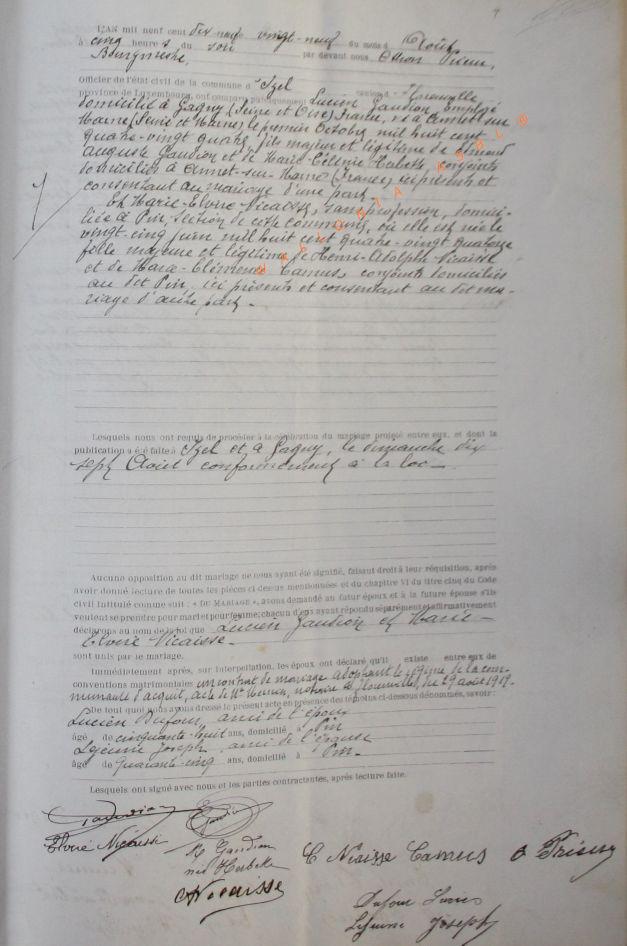 L'AN mil neuf cent dix neuf vingt-neuf du mois d'Août
à cinq heures du soir par devant nous
Bourgmestre,
officier de l'état civil de la commune d'Izel canton d
province de Luxembourg, ont comparu publiquement Lucien Gaudion Employé
domicilié à Gagny (Seine et Oise) France, né à Annet sur
Marne (Seine et Marne) le premier Octobre mil huit cent
quatre-vingt quatre, fils majeur et légitime de Edmond
Auguste Gaudion et de Marie conjoints
domiciliés à Annet-sur-Marne (France) ici présents et
consentant au mariage d'une part
Et Marie-Elvire-Nicaisse, sans profession, domici-
liée à Pin, section de cette commune, où elle est née le
vingt-cinq juin mil huit cent quatre-vingt quatorze
fille majeure et légitime de Henri-Adolphe Nicaisse
et de Marie-Clémence Camus, conjoints domiciliés
au dit Pin, ici présents et consentant au dit ma-
riage d'autre part -
Lesquels nous ont requis de procéder à la célébration du mariage projeté entre eux, et dont la
publication a été faite à Izel et à Gagny, le dimanche dix
sept Août conformément à la loi -
Aucune opposition au dit mariage ne nous ayant été signifié, faisant droit à leur réquisition, après
avoir donné lecture de toutes les pièces ci-dessus mentionnées et du chapitre VI du titre cinq du Code
civil intitulé comme suit : « DU MARIAGE », avons demandé au futur époux et à la future épouse s'ils
veulent se prendre pour mari et pour femme; chacun d'eux ayant répondu séparément et affirmativement
déclarons au nom de la loi que Lucien Gaudion et Marie-
Elvire Nicaisse -
sont unis par le mariage.
Immédiatement après, sur interpellation, les époux ont déclaré qu'il existe entre eux de
conventions matrimoniales un contrat de mariage adoptant le régime de la com-
munauté d'acquêt, acte de Me notaire à Florenville, du 29 août 1919.
De tout quoi nous avons dressé le présent acte en présence des témoins ci-dessous dénommés, savoir :
Lucien Dufour, ami de l'époux
âgé de cinquante-huit ans, domicilié à Pin
Lejeune Joseph, ami de l'épouse
âgé de Quarante-cinq ans, domicilié à Pin -
Lesquels ont signé avec nous et les parties contractantes, après lecture faite.
Gaudion Gaudion
Elvire Nicaisse
Gaudion
née
Nicaisse
C Nicaisse Camus
Dufour
Lejeune Joseph